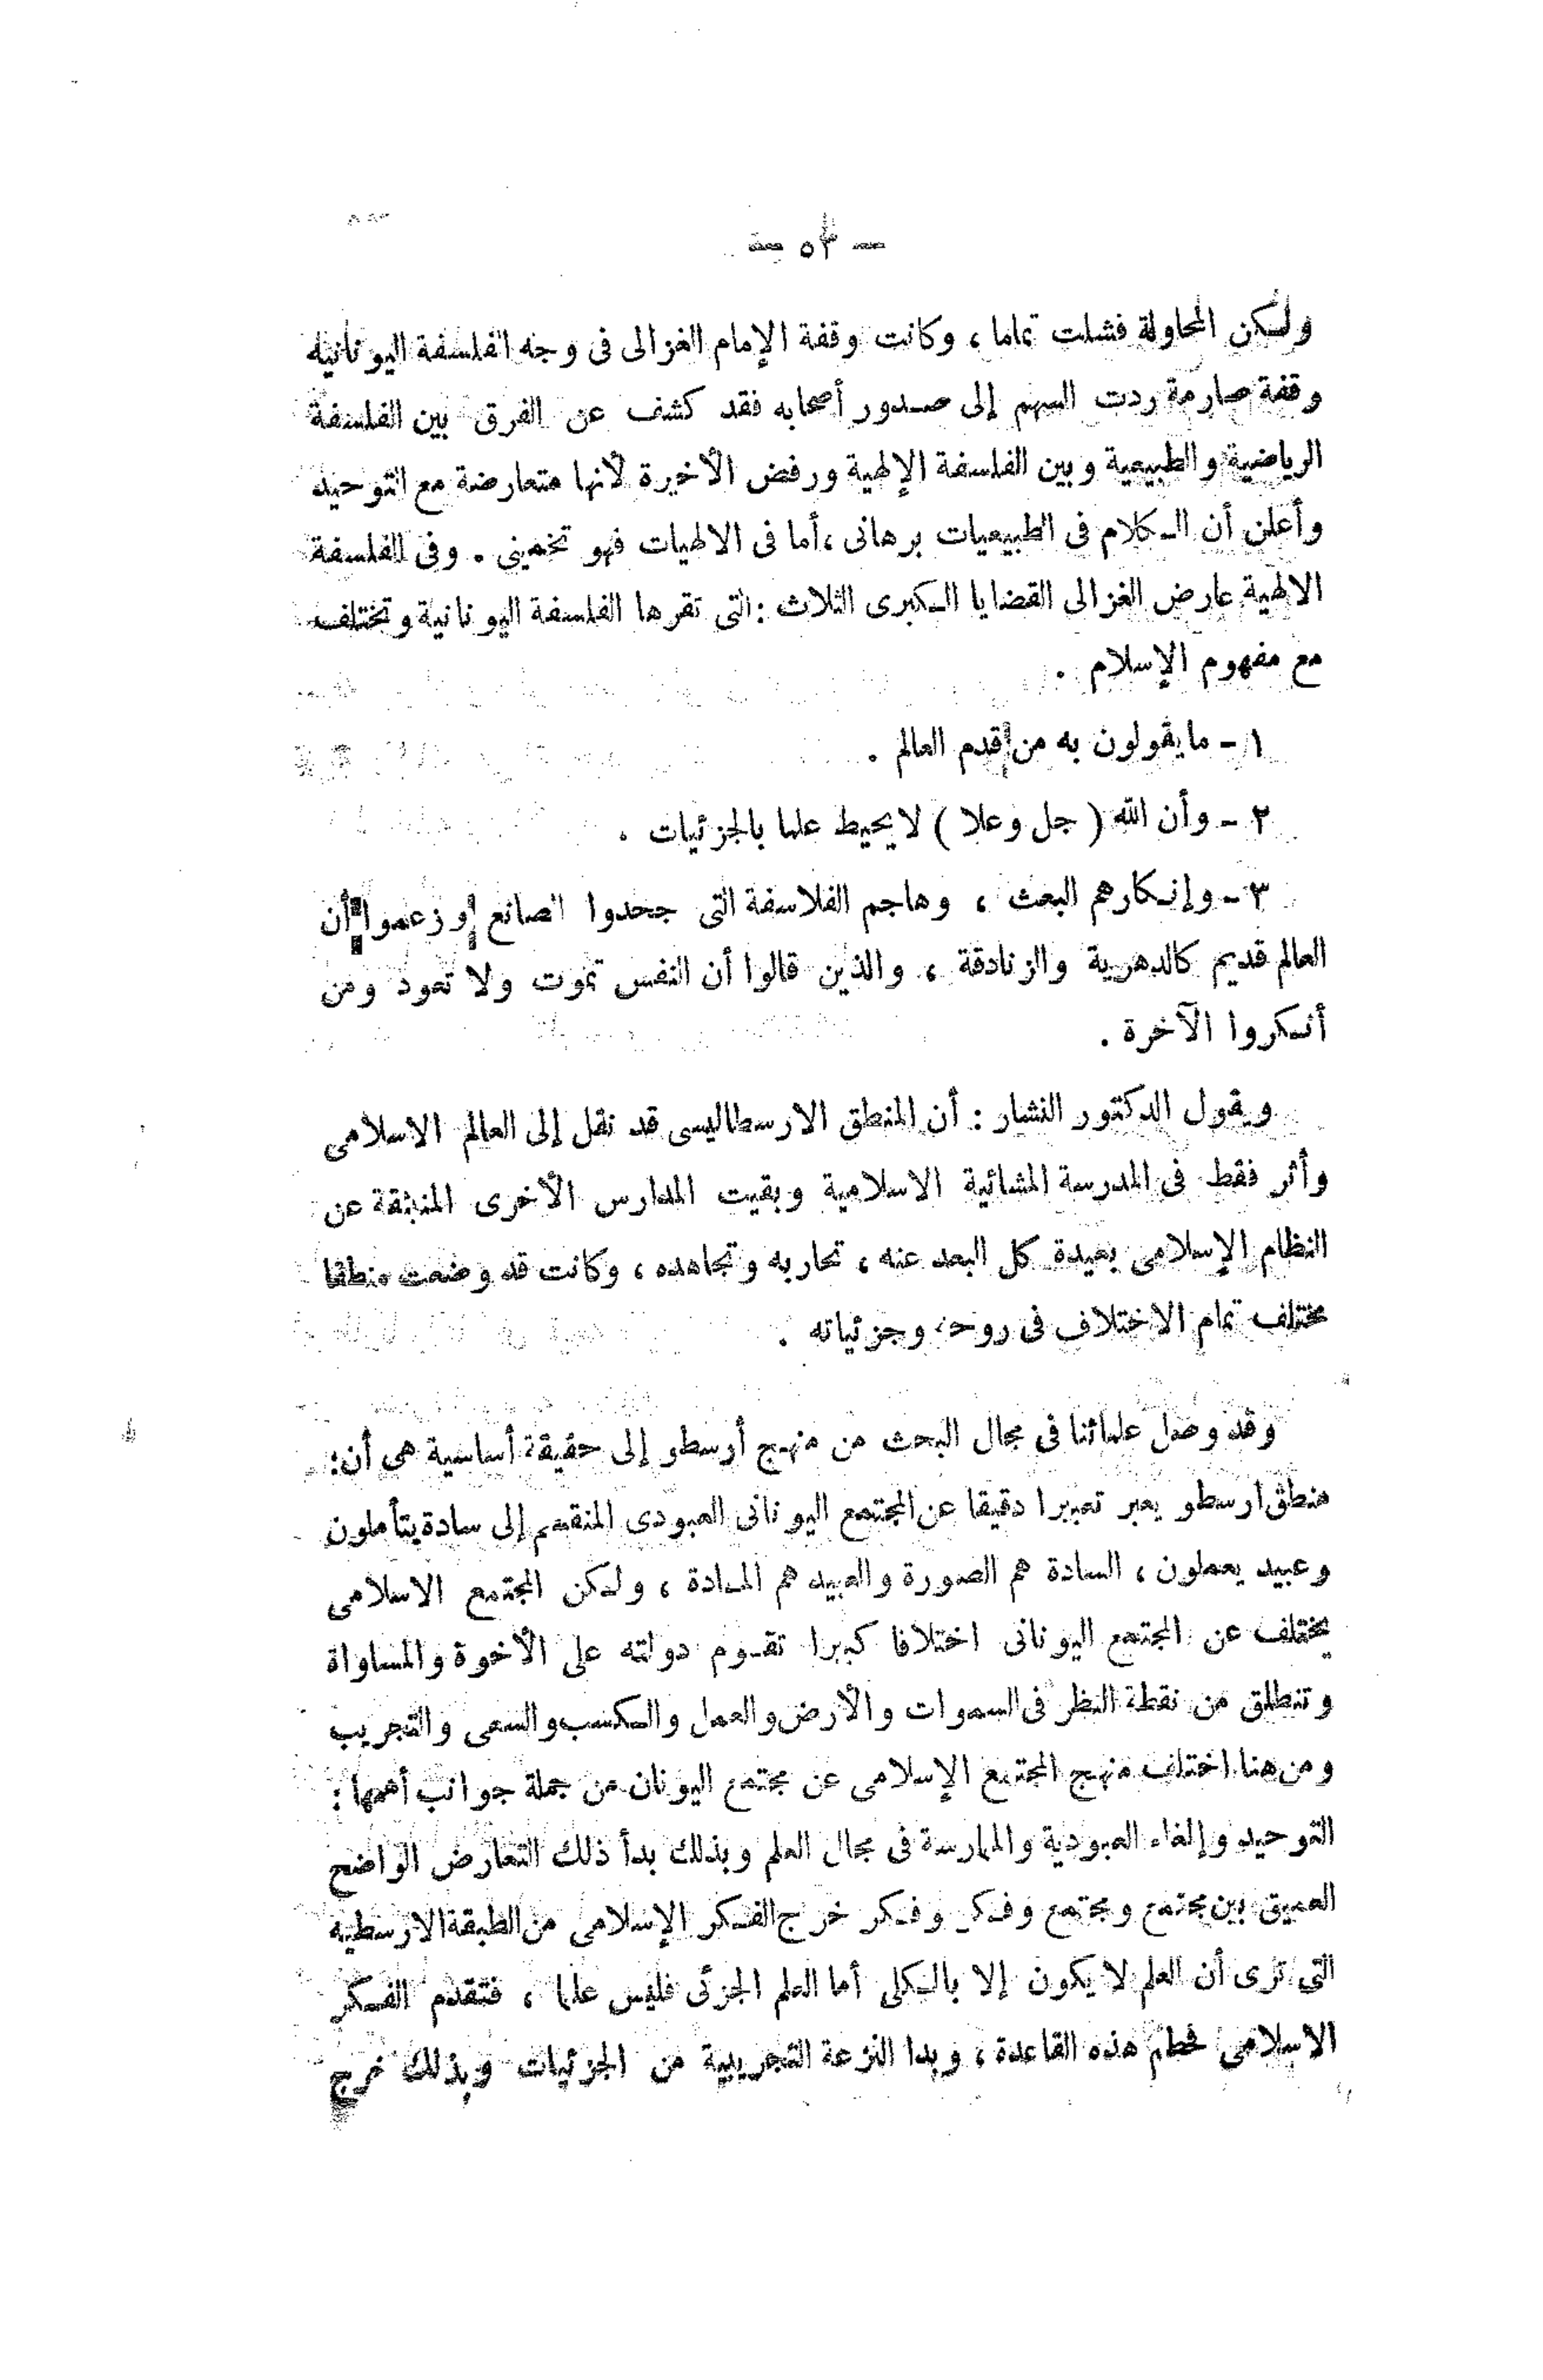 — ٥٣ —
ولكن المحاولة فشلت تماما ، وكانت وقفة الإمام الغزالى فى وجه الفلسفة اليونانية
وقفة صارمة ردت السهم إلى صدور أصحابه فقد كشف عن الفرق بين الفلسفة
الرياضية والطبيعية وبين الفلسفة الإلهية ورفض الأخيرة لأنها متعارضة مع التوحيد
وأعلن أن الكلام فى الطبيعيات برهانى ، أما فى الالهيات فهو تخمينى . وفى الفلسفة
الالهية عارض الغزالى القضايا الكبرى الثلاث : التى تقرها الفلسفة اليونانية وتختلف
مع مفهوم الإسلام .
١ - ما يقولون به من قدم العالم .
٢ - وأن الله ( جل وعلا ) لا يحيط علما بالجزئيات .
٣ - وإنكارهم البعث ، وهاجم الفلاسفة التى جحدوا الصانع وزعموا أن
العالم قديم كالدهرية والزنادقة ، والذين قالوا أن النفس تموت ولا تعود ومن
أنكروا الآخرة .
ويقول الدكتور النشار : أن المنطق الارسطاليسى قد نقل إلى العالم الاسلامى
وأثر فقط فى المدرسة المشائية الاسلامية وبقيت المدارس الأخرى المنبثقة عن
النظام الإسلامى بعيدة كل البعد عنه ، تحاربه وتجاهده ، وكانت قد وضعت منطقا
مختلف تمام الاختلاف فى روحه وجزئياته .
وقد وصل علمائنا فى مجال البحث من منهج أرسطو إلى حقيقة أساسية هى أن :
منطق ارسطو يعبر تعبيرا دقيقا عن المجتمع اليونانى العبودى المنقسم إلى سادة يتأملون
وعبيد يعملون ، السادة هم الصورة والعبيد هم المادة ، ولكن المجتمع الاسلامى
يختلف عن المجتمع اليونانى اختلافا كبيرا تقوم دولته على الأخوة والمساواة
وتنطلق من نقطة النظر فى السموات والأرض والعمل والكسب والسعى والتجريب
ومن هنا اختلف منهج المجتمع الإسلامى عن مجتمع اليونان من جملة جوانب أهمها :
التوحيد وإلغاء العبودية والممارسة فى مجال العلم وبذلك بدأ ذلك التعارض الواضح
العميق بين مجتمع ومجتمع وفكر وفكر خرج الفكر الإسلامى من الطبقة الارسطية
التى ترى أن العلم لا يكون إلا بالكلى أما العلم الجزئى فليس علما ، فتقدم الفكر
الاسلامى فحطم هذه القاعدة ، وبدا النزعة التجريبية من الجزئيات وبذلك خرج